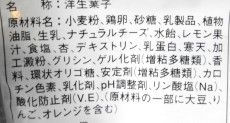 名称：洋生菓子
原材料名：小麦粉、鶏卵、砂糖、乳製品、植物
油脂、生乳、ナチュラルチーズ、水飴、レモン果
汁、食塩、杏、デキストリン、乳蛋白、寒天、加
工澱粉、グリシン、ゲル化剤（増粘多糖類）、香
料、環状オリゴ糖、安定剤（増粘多糖類）、カロ
チン色素、乳化剤、pH調整剤、リン酸塩（Na）、
酸化防止剤（V.E）、（原材料の一部に大豆、り
んご、オレンジを含む）